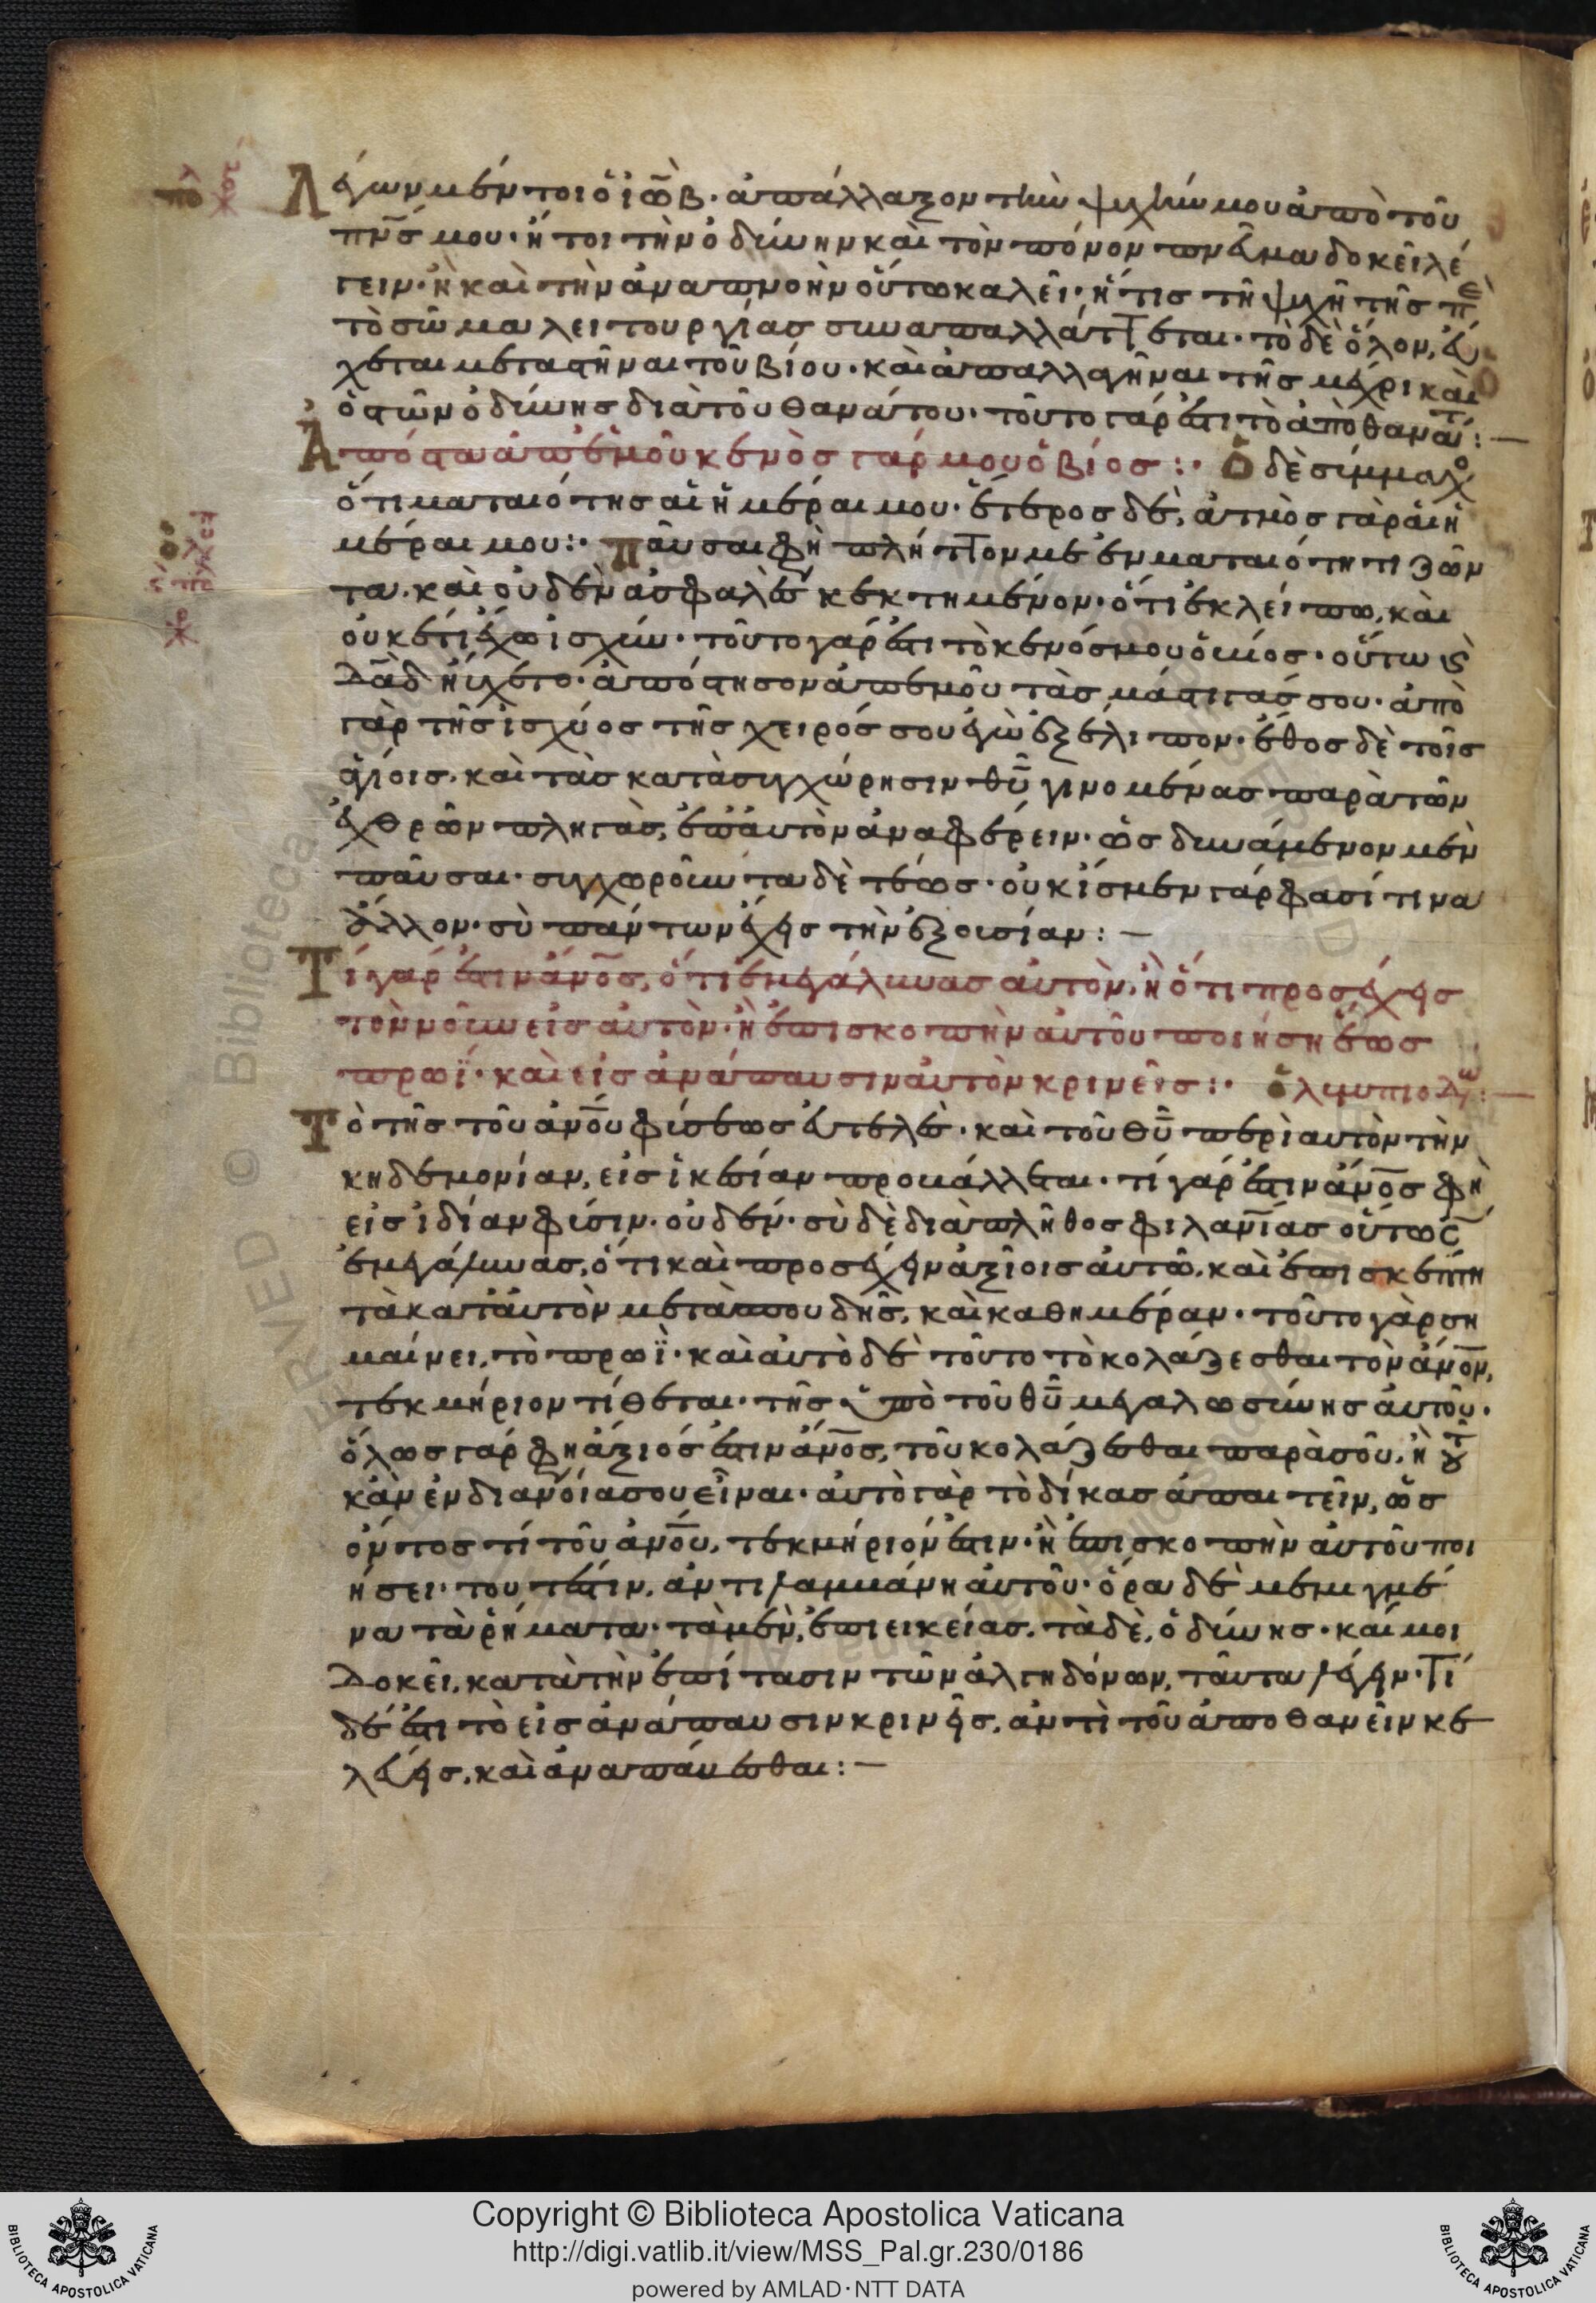 Λέγων μέντοι ὁ ἰὼβ· ἀπάλλαξον τὴν ψυχήν μου ἀπὸ τοῦ
πν̅ς μου· ἤτοι τὴν ὀδύνην καὶ τὸν πόνον πνεῦμα δοκεῖ λέ
γειν· ἢ καὶ τὴν ἀναπνοὴν οὕτω καλεῖ· ἥτις τῇ ψυχῇ τῆς π
τὸ σῶμα λειτουργίας συναπαλλάττεται· τὸ δὲ ὅλον, εὔ
χεται μεταστῆναι τοῦ βίου· καὶ ἀπαλλαγῆναι τῆς μέχρι καὶ
ὀστῶν ὀδύνης διὰ τοῦ θανάτου· τοῦτο γάρ ἐστι τὸ ἀπὸ θανατ:—
Ἀπόστα ἀπ' ἐμοῦ κενὸς γάρ μου ὁ βίος:· Ὁ δὲ σύμμαχο
ὅτι ματαιότης αἱ ἡμέραι μου· ἕτερος δὲ, ἀτμὸς γὰρ αἱ ἡ
μέραι μου:· Παῦσαι φη πλήττον με ἐν ματαιότητι ζῶν
τα· καὶ οὐδὲν ἀσφαλὲς κεκτημένον· ὅτι ἐκλείπω, καὶ
οὐκέτι ἔχω ἰσχύν· τοῦτο γάρ ἐστι τὸ κενός μου ὁ βίος· οὕτω ϛ
δα̅δ ηὔχετο· ἀπόστησον ἀπ' ἐμοῦ τὰς μάστιγάς σου· ἀπὸ
γὰρ τῆς ἰσχύος τῆς χειρός σου ἐγὼ ἐξέλιπον· ἔθος δὲ τοῖς
ἁγίοις· καὶ τὰς κατὰ συγχώρησιν θυ̅ γινομένας παρὰ τῶν
ἐχθρῶν πληγὰς, ἐπ' αὐτὸν ἀναφέρειν· ὡς δυνάμενον μὲν
παῦσαι· συγχωροῦντα δὲ τέως· οὐκ ἴσμεν γάρ φασί τινα
ἄλλον· σὺ πάντων ἔχεις τὴν ἐξουσίαν:—
Τί γάρ ἐστιν ἄνο̅ς, ὅτι ἐμεγάλυνας αὐτόν· ἢ ὅτι προσέχεις
τὸν νοῦν εἰς αὐτὸν· ἢ ἐπισκοπὴν αὐτοῦ ποιήση ἕως
πρωῒ· καὶ εἰς ἀνάπαυσιν αὐτὸν κρινεῖς:· ὀλυμπιοδω:—
Τὸ τῆς τοῦ ἀνο̅υ φύσεως εὐτελὲς· καὶ τοῦ θυ̅ περὶ αὐτὸν τὴν
κηδεμονίαν, εἰς ἱκεσίαν προβάλλεται· τί γάρ ἐστιν ἄνο̅ς φη
εἰς ἰδίαν φύσιν· οὐδέν· σὺ δὲ διὰ πλῆθος φιλανι̅ας οὕτως
ἐμεγάλυνας, ὅτι καὶ προσέχειν ἀξιοῖς αὐτῶ, καὶ ἐπισκέπτη
τὰ κατ' αὐτὸν μετὰ σπουδῆς, καὶ καθ ημέραν· τοῦτο γὰρ ση
μαίνει, τὸ πρωῒ· καὶ αὐτὸ δὲ τοῦτο τὸ κολάζεσθαι τὸν ἄνο̅ν,
τεκμήριον τίθεται· τῆς ὑπὸ τοῦ θυ̅ μεγαλωσύνης αὐτοῦ·
ὅλως γάρ φη ἄξιός ἐστιν ἄνο̅ς, τοῦ κολάζεσθαι παρὰ σοῦ, ἢ τοῦ
κἂν ἐν διανοία σου εἶναι· αὐτὸ γὰρ τὸ δίκας ἀπαιτεῖν, ὡς
ὄντος τί τοῦ ἀνο̅υ, τεκμήριόν ἐστιν· ἢ ἐπισκοπὴν αὐτοῦ ποι
ήσει· τουτέστιν, ἀντιλαμβάνη αὐτοῦ· ὅρα δὲ μεμιγμέ
να τὰ ῥήματα· τὰ μὲν, ἐπιεικείας, τὰ δὲ, ὀδύνης· καί μοι
δοκεῖ, κατὰ τὴν ἐπίτασιν τῶν ἀλγηδόνων, ταῦτα λέγειν· τί
δέ ἐστι τὸ εἰς ἀνάπαυσιν κρινεῖς, ἀντὶ τοῦ ἀποθανεῖν κε
λεύεις, καὶ ἀναπαύεσθαι:—
Copyright © Biblioteca Apostolica Vaticana
http://digi.vatlib.it/view/MSS_Pal.gr.230/0186
powered by AMLAD·NTT DATA